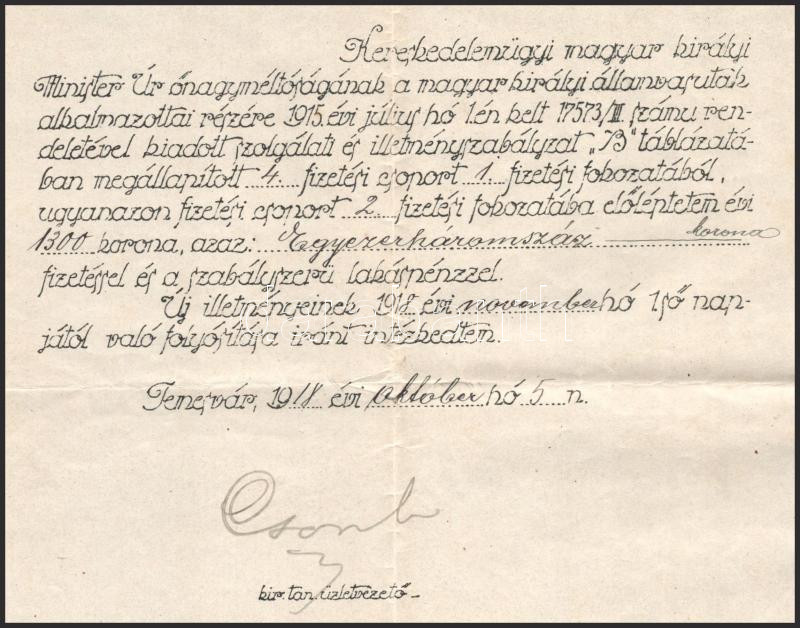 Kereskedelemügyi magyar királyi
Minister Úr őnagyméltóságának a magyar királyi államvasutak
alkalmazottai részére 1915. évi július hó 1.én kelt 17573/III. számu ren-
deletével kiadott szolgálati és illetményszabályzat „B" táblázatá-
ban megállapított 4. fizetési csoport 1. fizetési fokozatából,
ugyanazon fizetési csoport 2. fizetési fokozatába előléptetem évi
1300 korona, azaz: Egyezerháromszáz korona
fizetéssel és a szabályszerü lakáspénzzel.
Új illetményeinek 1918. évi november hó 1ső nap-
jától való folyósítása iránt intézkedtem.
Temesvár, 1918 évi október hó 5 n.
kir. tan. üzletvezető